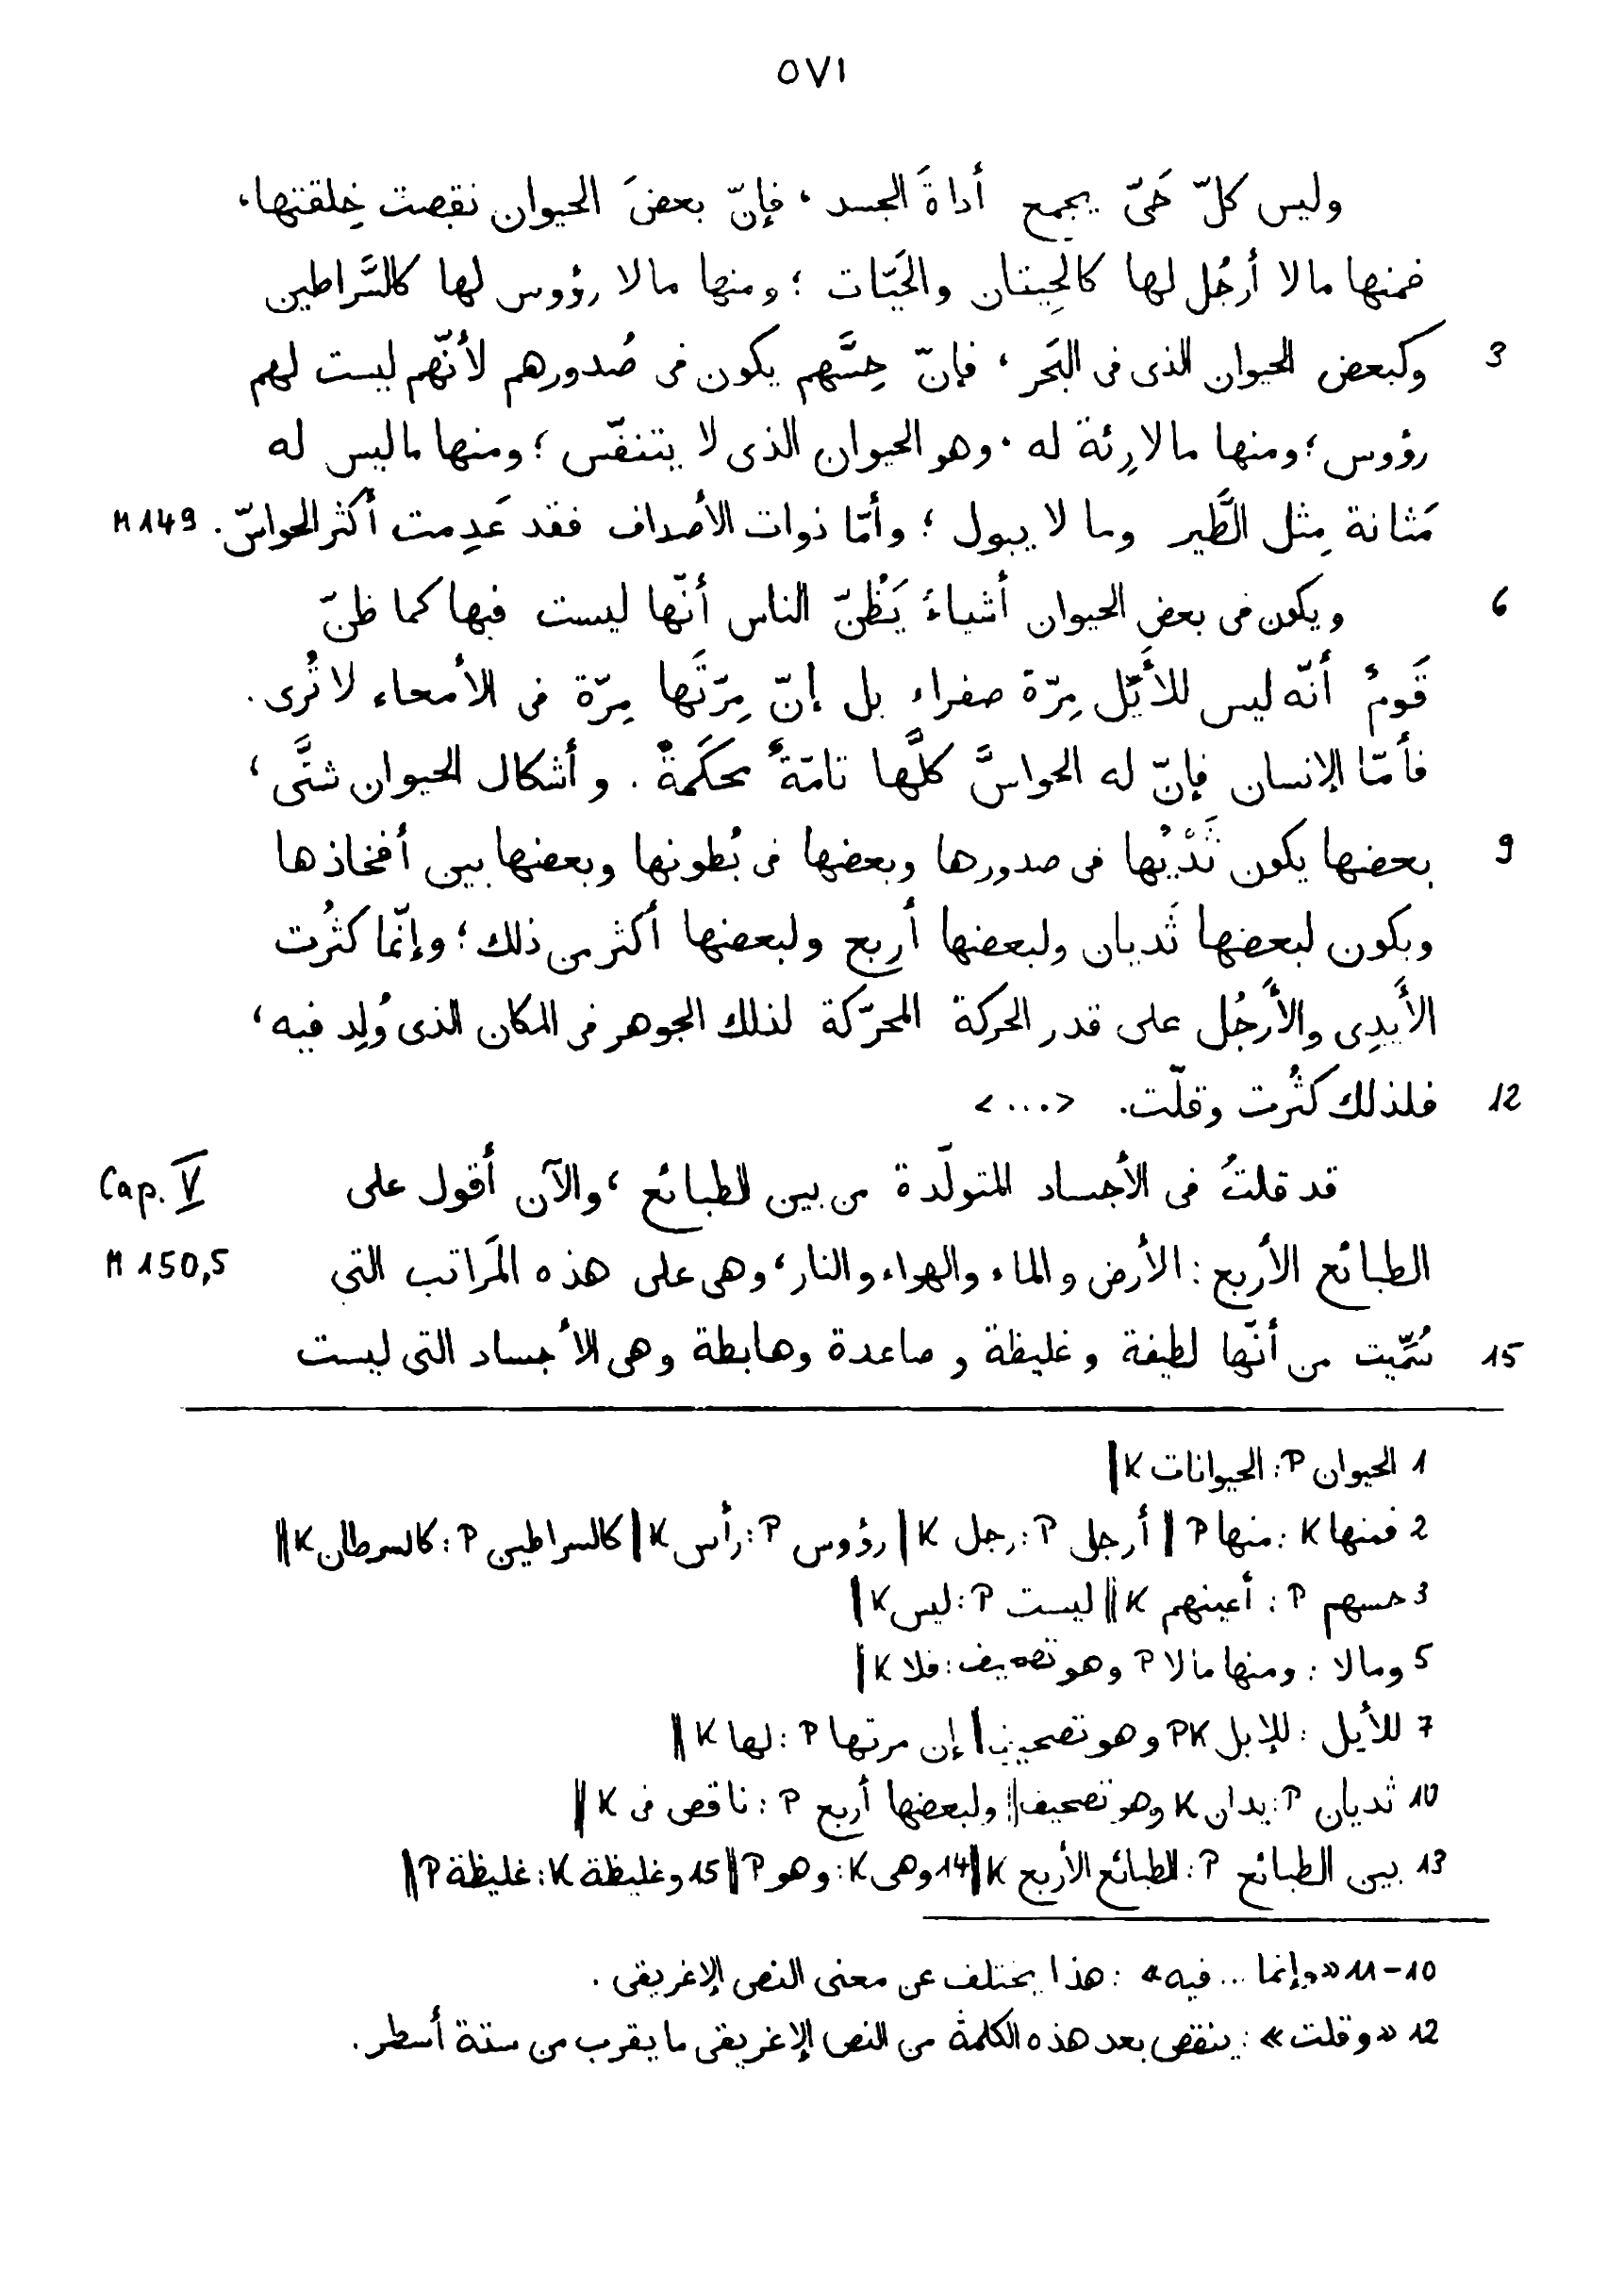 ٥٧١
وليس كلّ حَىّ يجمع أداةَ الجسد، فإنّ بعضَ الحيوان نقصت خِلقتها،
فمنها ما لا أرجُل لها كالحِيتان والحَيّات؛ ومنها ما لا رؤوس لها كالسَّراطين
3 وكبعض الحيوان الذى فى البَحر، فإنّ حِسَّهم يكون فى صُدورهم لأنّهم ليست لهم
رؤوس؛ ومنها ما لا رِئة له، وهو الحيوان الذى لا يتنفّس؛ ومنها ما ليس له
مَثانة مِثل الطَّير وما لا يبول؛ وأمّا ذوات الأصداف فقد عَدِمت أكثر الحواسّ. M 149
6 ويكون فى بعض الحيوان أشياءُ يَظُنّ الناس أنّها ليست فيها كما ظنّ
قَومٌ أنّه ليس للأَيِّل مِرّة صفراء بل إنّ مِرّتَها مِرّة فى الأمعاء لا تُرى.
فأمّا الإنسان فإنّ له الحواسَّ كلَّها تامّةً محكَمةً. وأشكال الحيوان شتَّى،
9 بعضها يكون ثَدْيُها فى صدورها وبعضها فى بُطونها وبعضها بين أفخاذها
ويكون لبعضها ثَديان ولبعضها أربع ولبعضها أكثر من ذلك؛ وإنّما كثُرت
الأَيدِى والأَرجُل على قدر الحركة المحرّكة لذلك الجوهر فى المكان الذى وُلِد فيه،
12 فلذلك كثُرت وقلّت. <...>
قد قلتُ فى الأجساد المتولّدة من بين الطبائع، والآن أقول على Cap. V
الطبائع الأربع: الأرض والماء والهواء والنار، وهى على هذه المَراتب التى M 150,5
15 سُمِّيت من أنّها لطيفة وغليظة وصاعدة وهابطة وهى الأجساد التى ليست
1 الحيوان P: الحيوانات K ||
2 فمنها K: منها P || أرجل P: رجل K | رؤوس P: رأس K | كالسراطين P: كالسرطان K ||
3 حسهم P: أعينهم K || ليست P: ليس K |
5 وما لا: ومنها ما لا P وهو تصحيف: فلا K |
7 للأيل: للإبل PK وهو تصحيف | إن مرتها P: لها K ||
10 ثديان P: يدان K وهو تصحيف || ولبعضها أربع P: ناقص فى K ||
13 بين الطبائع P: الطبائع الأربع K || 14 وهى K: وهو P || 15 وغليظة K: غليظة P ||
10-11 «وإنما ... فيه»: هذا يختلف عن معنى النص الإغريقى.
12 «وقلت»: ينقص بعد هذه الكلمة من النص الإغريقى ما يقرب من ستة أسطر.